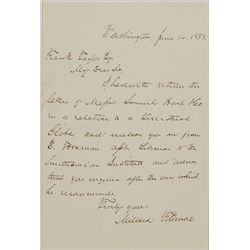 Washington June 14. 1851.
Frank Taylor Esq
My Dear Sir
I herewith return the
letter of Messrs Samuel &Co
in a relation to a Terrestrial
Globe, and inclose you one from
E. Foreman asst Librarian to the
Smithsonian Institute and advise
that you enquire after the one which
he recommends.
Truly yours
Millard Fillmore